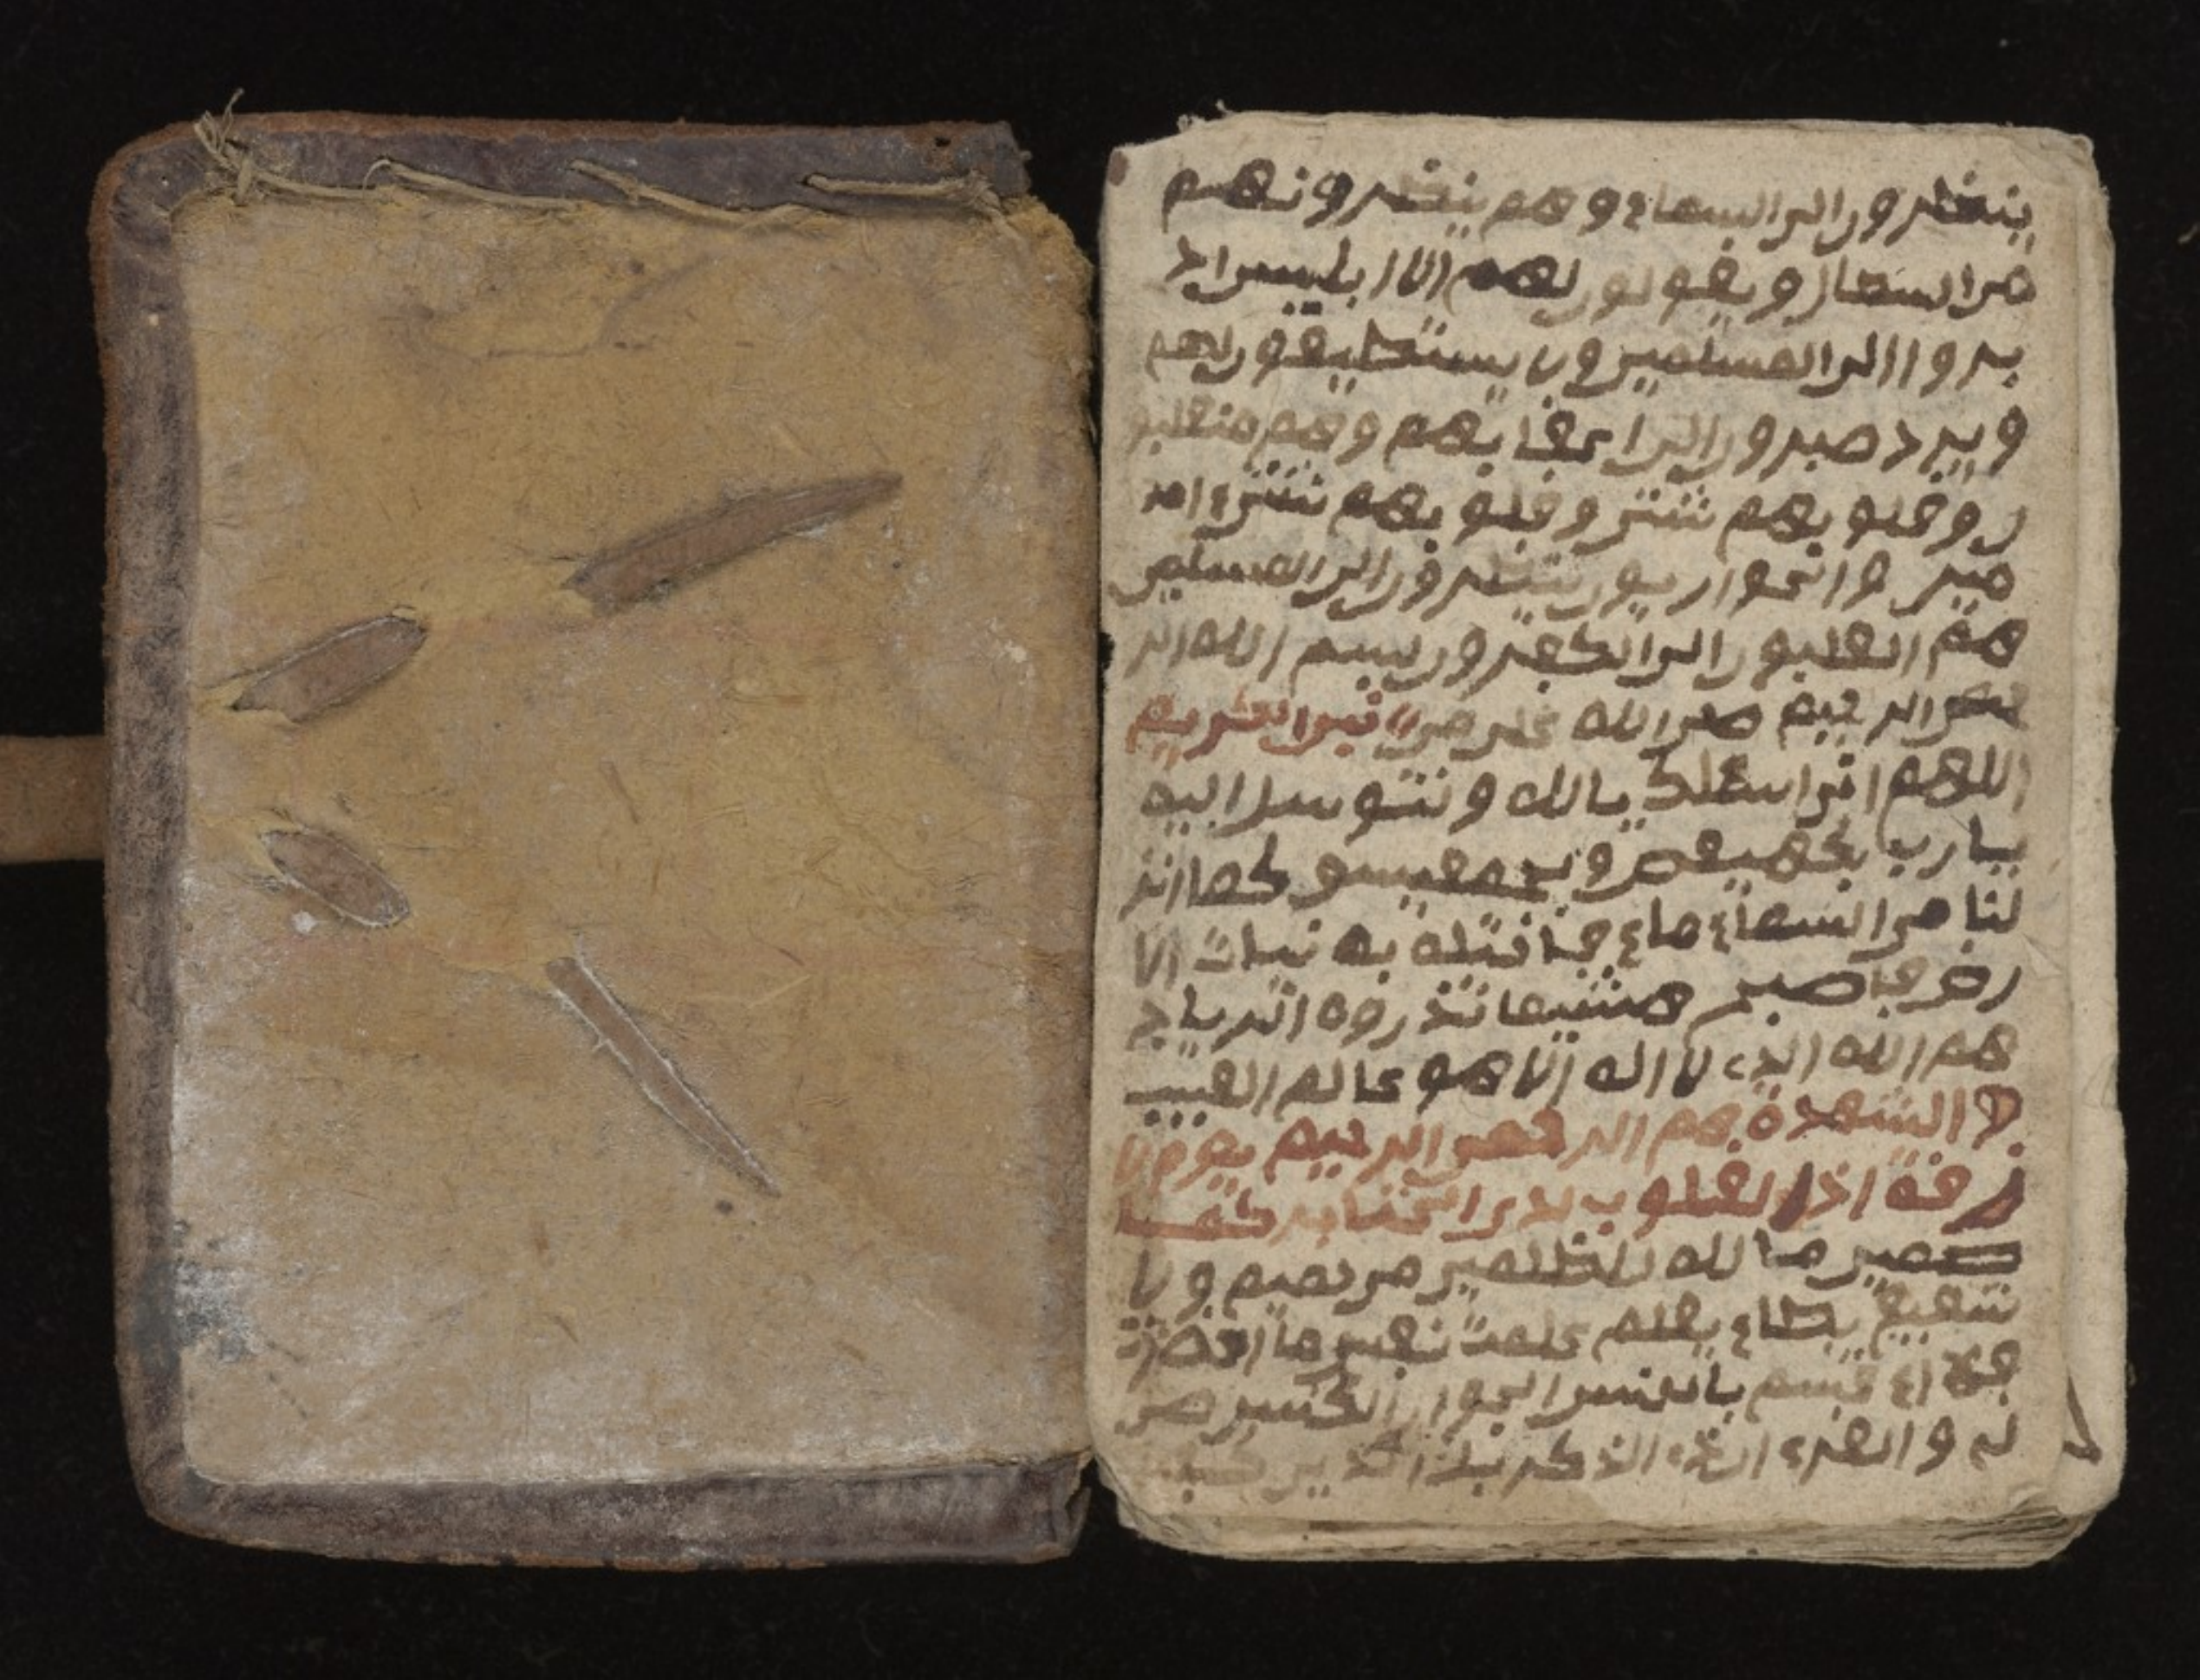 ينظرون الى السماء وهم ينظرونهم
من السما و يقولون لهم الا ابليس اد
بروا الى المسلمين ولا يستطيعون لهم
ويرد صبرون الى اعقابهم وهم منقلبو
ن وقلوبهم شتى وقلوبهم شتى امد
والحواريون ينظرون الى المسلمين
هم انقلبون الى الكفرون بسم الله الر
حمن الرحيم صلى الله على من لا نبي الكريم
اللهم انى اسئلك يالله ونتوسل اليه
يارب بكهيعص وبحمعيسو كما انز
لنا من السماء ماء فاختلط به نبات الا
رض فاصبح هشيما تذروه الرياح
هم الله الذي لا اله الا هو عالم الغيب
و الشهدة هم الرحمن الرحيم يوم لا
زفة اذ القلوب لدى الحناجر كما
ظمين ما لله للظلمين من حميم ولا
شفيع يطاع يعلم علمت نفس ما احضرت
فلا اقسم بالخنس الجوار الكنس ص
والقرء ان ذي الذكر بل الذين